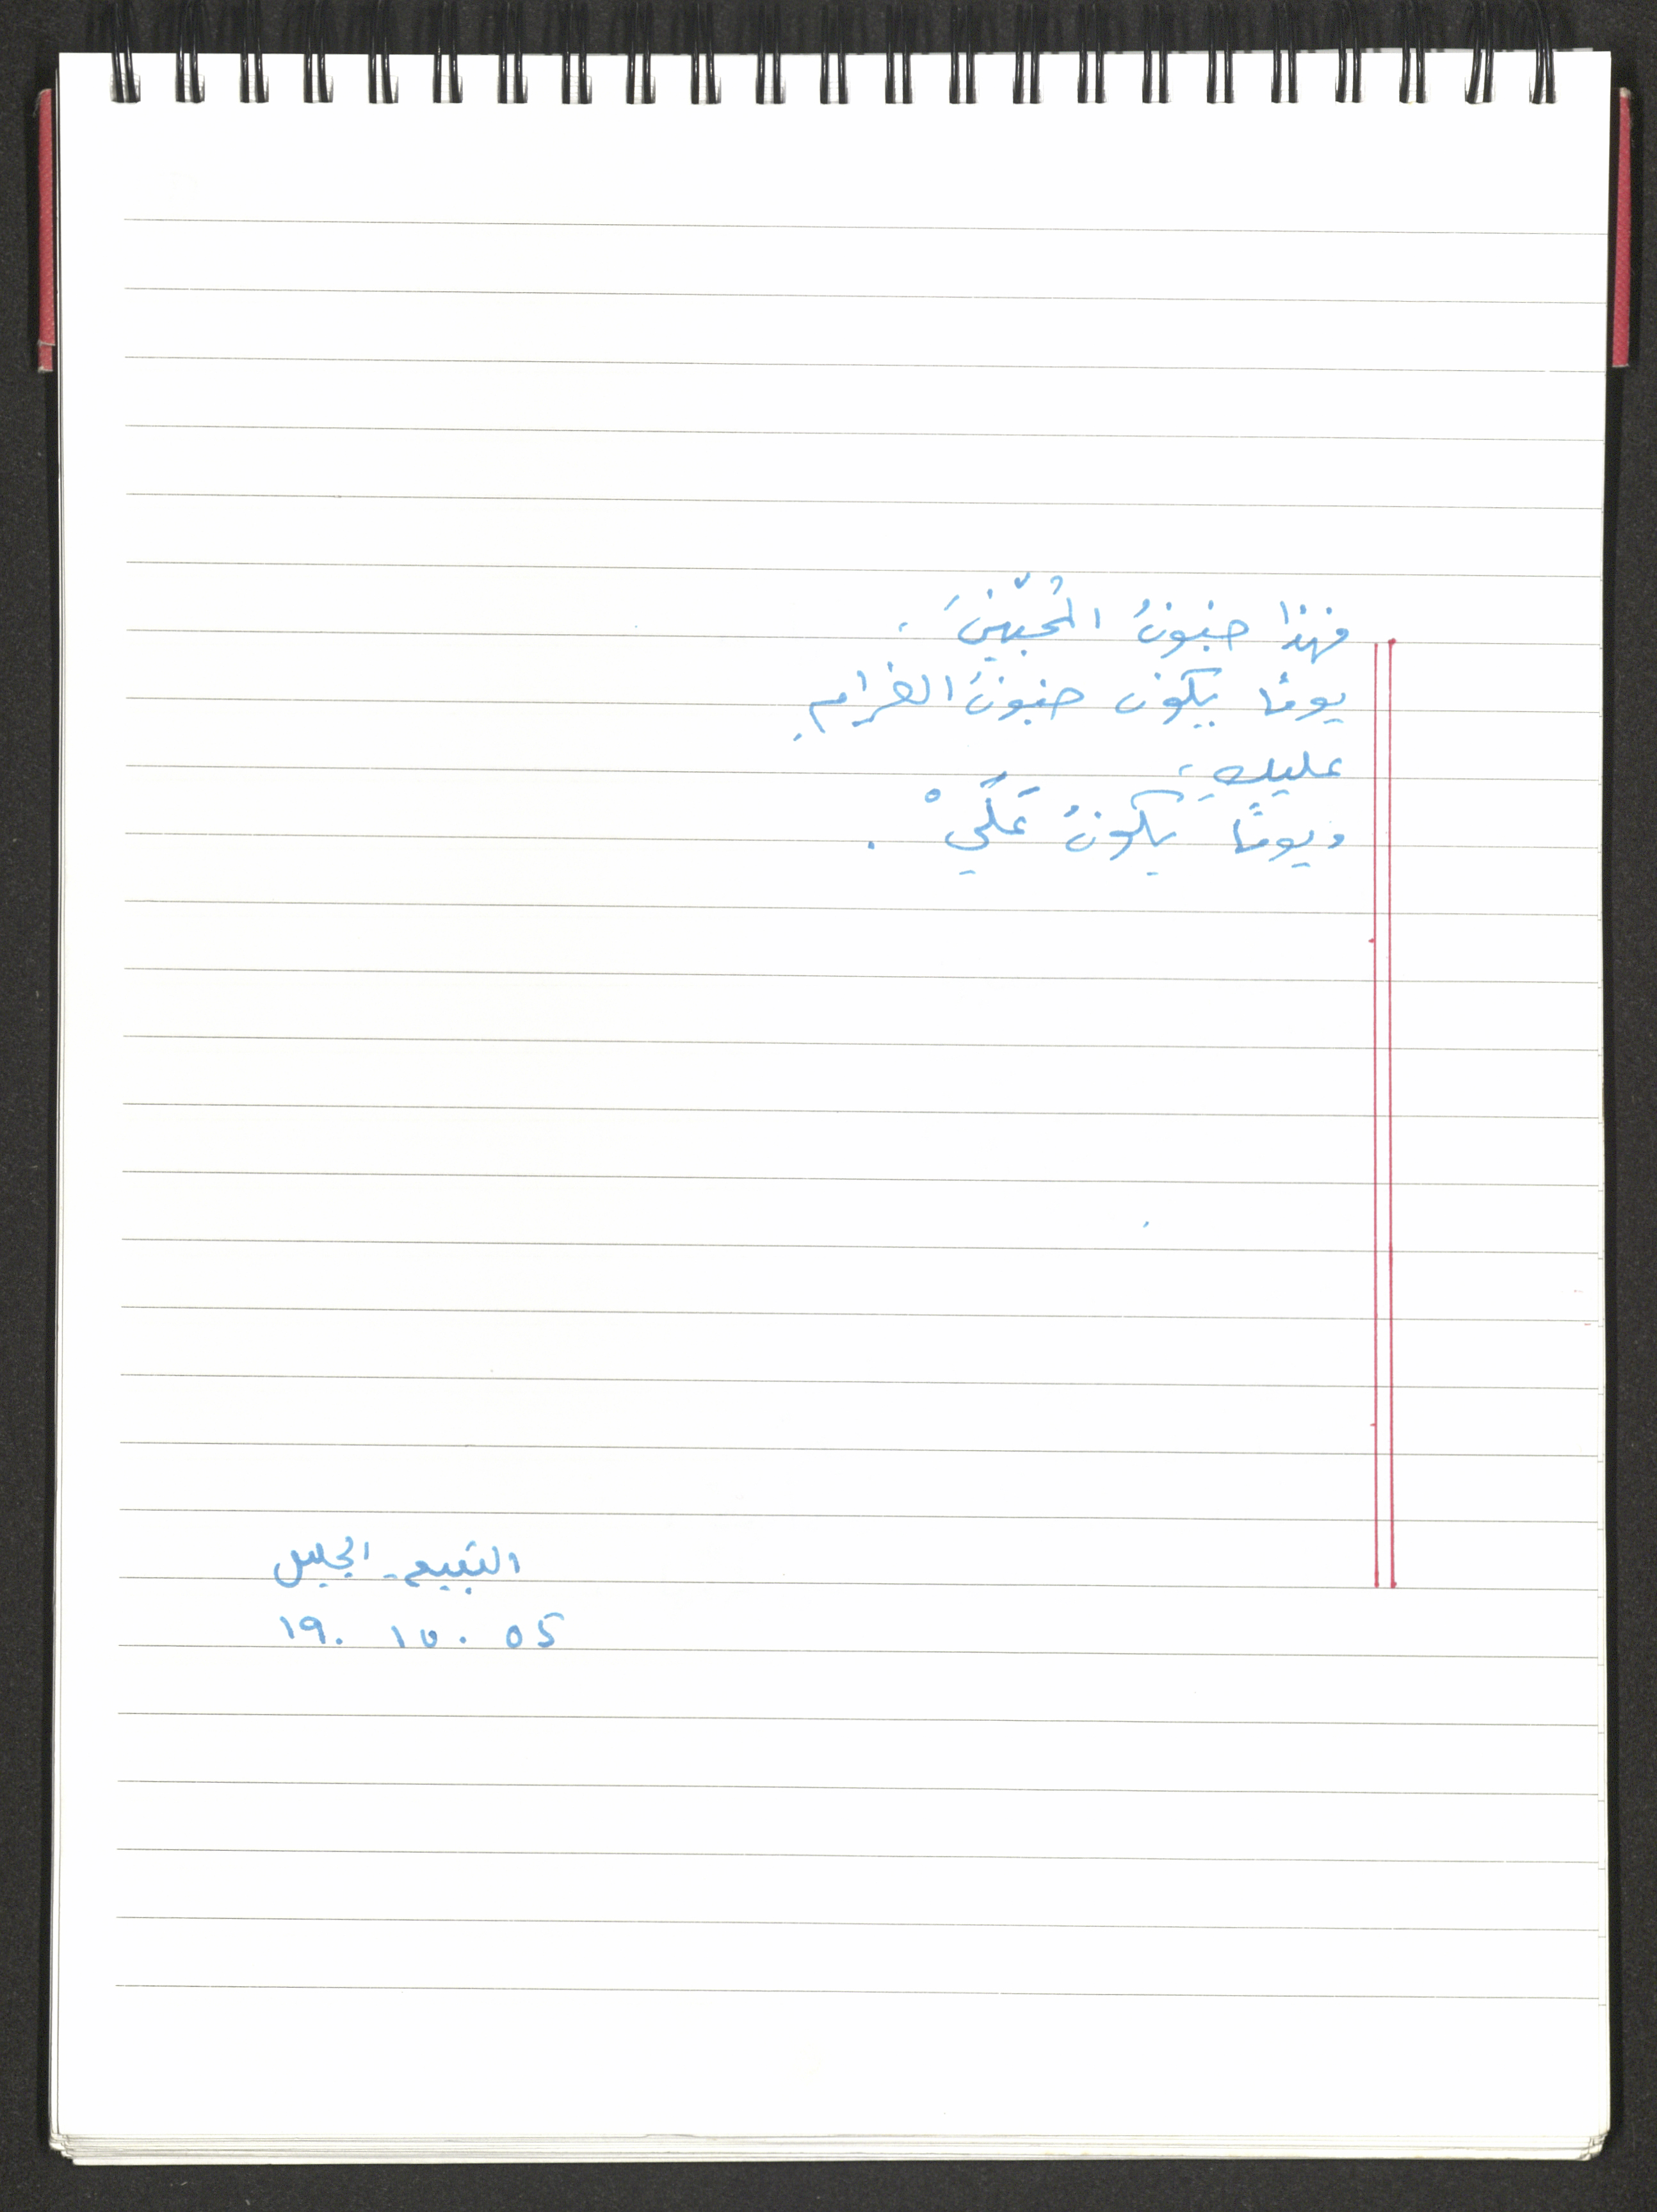 فهذا جنونُ المُحبّينَ ،
يومًا يكون جنونُ الغرامِ
عليكِ ،
ويومًا يكونُ عَلَيْ .
البقيع - الجليل
19. 10. 05